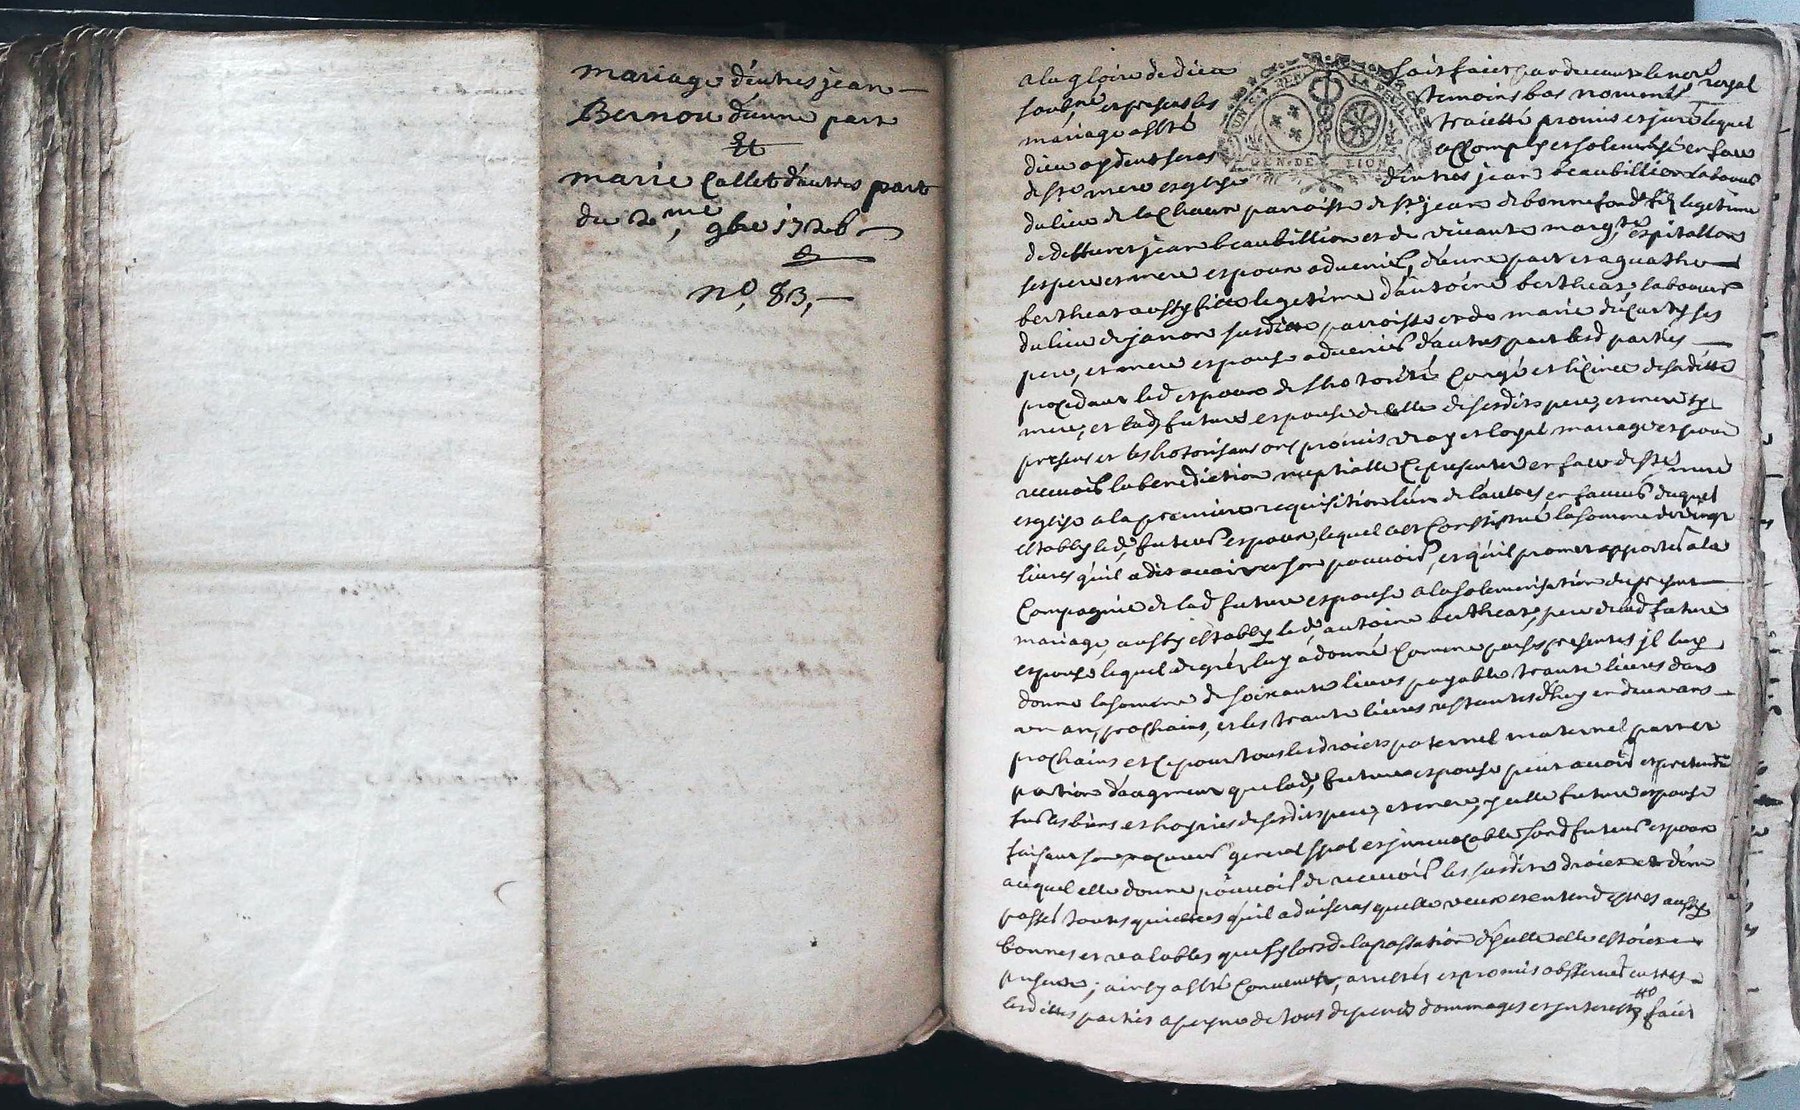 mariage d'entres jean
Bernou d'une part
Et
marie Callet d'autres part
du 2me 9bre 1726
n° 83,
a la gloire de dieu soit faict par devant le nore royal
soubné et presens les temoins bas nommés
mariage a esté traicté promis et juré lequel
dieu aydent seras accomply et solemnisé en face
de ste mere esglise d'entres jean beaubillion laboureur
du lieu de la parroisse de st jean de bonnefond fils legitime
de deffunct jean beaubillion et de vivante margte espitallon
ses pere et mere espoux advenir, d'une part et aguathe
bertheas aussy fille legitime d'antoine bertheas laboureur
du lieu de janon susditte parroisse et de marie ses
pere, et mere espouse advenir d'autres part lesd parties
procedant led espoux de l'hotorité congé et licence de saditte
mere, et lad future espouse de celle de sesdits pere, et mere
presens et les hotorisans ont promis vray et loyal mariage et pour
recevoir la benediction nuptialle ce presenter en face de ste mere
esglise a la premiere requisition l'un de l'autres en faveur duquel
estably led futeur espoux, lequel c'est constitué la somme de vingt
livres qu'il a dit avoir en son pouvoir, et qu'il promet apporter a la
compagnie de lad future espouse a la solemnisation du present
mariage, aussy estably led antoine bertheas, pere de lad future
espouse lequel de gré luy a donné comme par ses presentes il luy
donne la somme de soixante livres payable trante livres dans
un an, prochains, et les trante livres restantes d'huy en deux ans
prochains et ce pour tous les droicts paternel maternel part et
portion d'augment que lad future espouse peut avoir et pretendre
sur les biens et hoyries de sesdits pere, et mere, ycelle future espouse
faisant son procureur general spal et jrrevocable sond futeur espoux
auquel elle donne pouvoir de recevoir les susdits droicts et d'en
passer toutes quictances qu'il advisera quelle veux et entend estres aussy
bonnes et valables que sy lors de la passation d'ycelle elle estoit
presente; ainsy a esté convenu, arrestés et promis observer entres
lesdittes parties a peyne de tous depens dommages et jnterests faict
GEN. DE LION